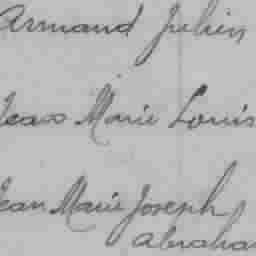 Armand Julien
Jean Marie Louis
Jean Marie Joseph
Abraham